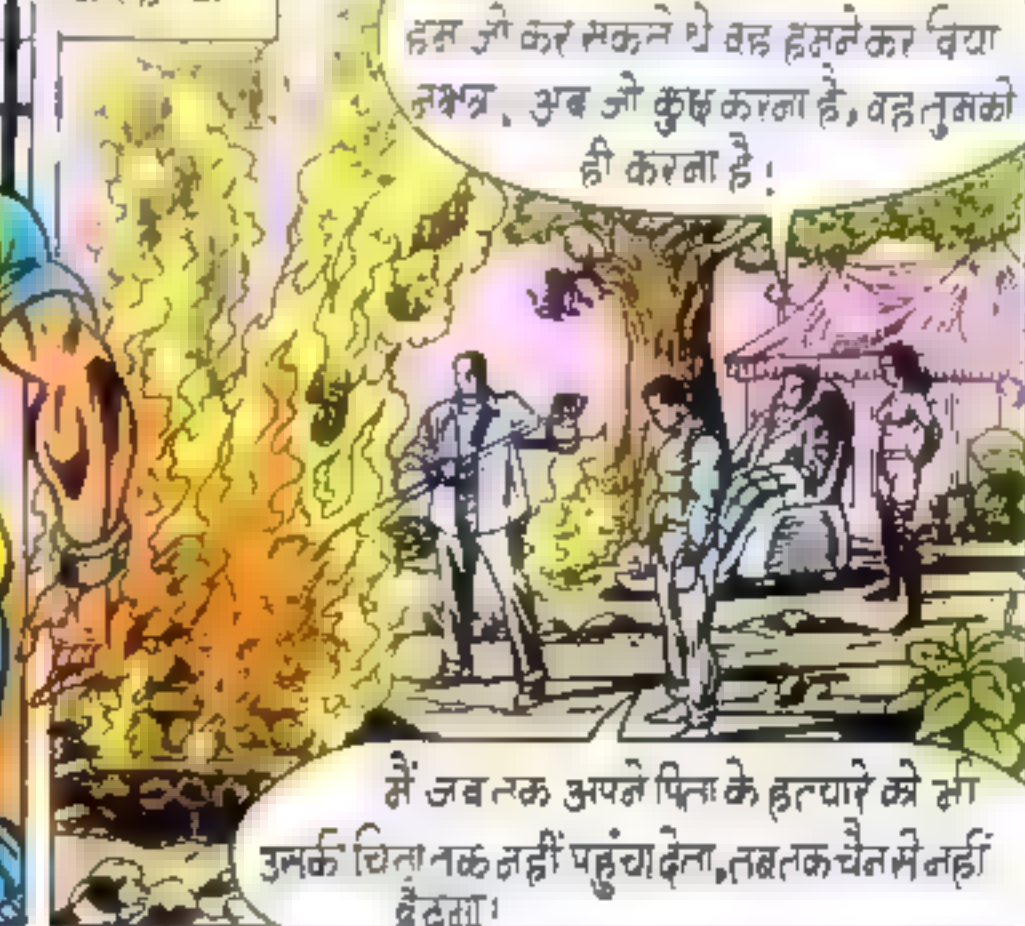 हम जो कर सकते थे वह हमने कर दिया
अब जो कुछ करना है, वह तुमको
ही करना है!
मैं जब तक अपने पिता के हत्यारे को भी
उसकी चिता तक नहीं पहुंचा देता, तब तक चैन से नहीं
बैठूंगा!